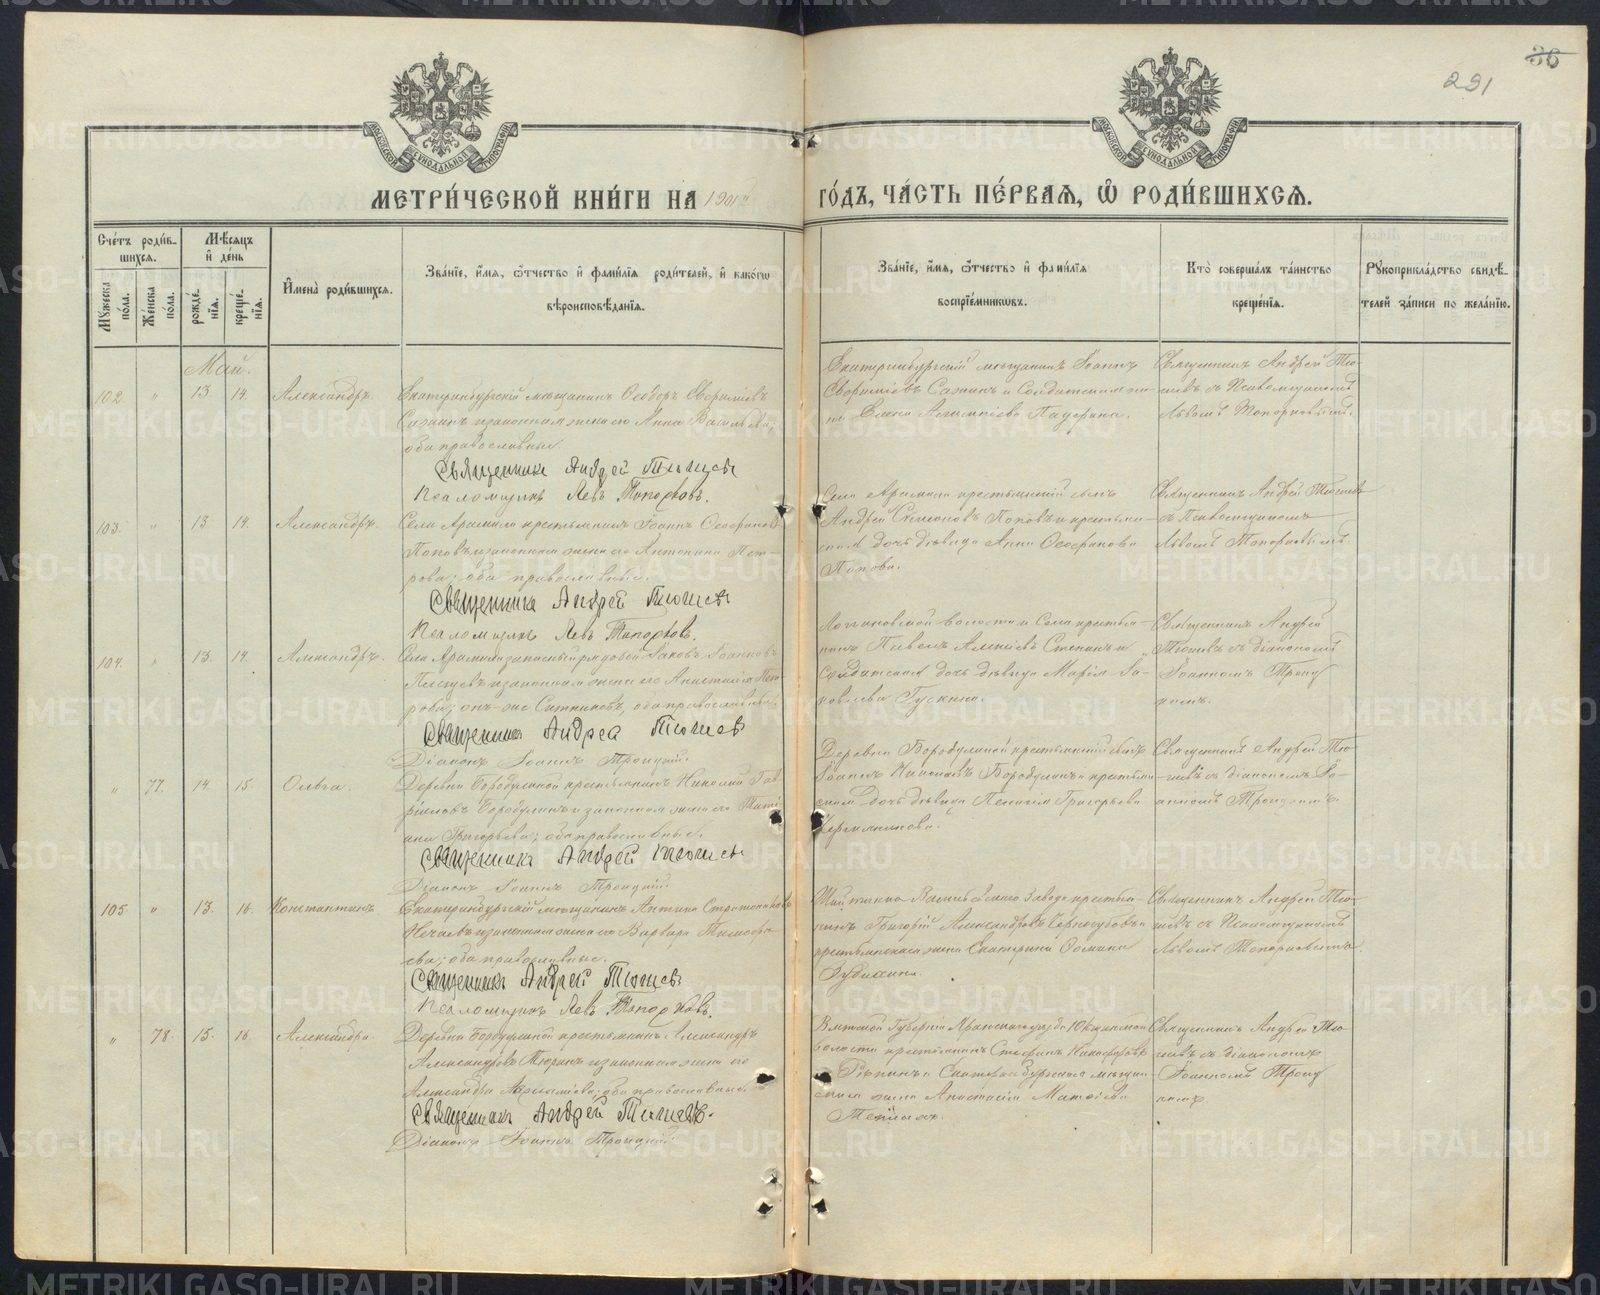 36
291
МОСКОВСКОЙ СѴНОДАЛЬНОЙ ТИПОГРАФІИ
МОСКОВСКОЙ СѴНОДАЛЬНОЙ ТИПОГРАФІИ
МЕТРИ́ЧЕСКОЙ КНИ́ГИ НА 1901й ГО́ДЪ, ЧА́СТЬ ПЕ́РВАЯ, Ѡ РОДИ́ВШИХСЯ.
Счётъ роди́в-
шихся.
Мужеска по́ла.
Же́нска по́ла.
Мѣ́сяцъ
и҆ де́нь
рожде́-
нїя.
креще́-
нїя.
И҆мена̀ роди́вшихся.
Зва́нїе, и҆́мя, ѻ҆́тчество и҆ фами́лїя роди́телей, и҆ како́гѡ
вѣроисповѣ́данїя.
Зва́нїе, и҆́мя, ѻ҆́тчество и҆ фами́лїя
воспрїе́мникѡвъ.
Кто̀ соверша́лъ та́инство
креще́нїя.
Рꙋкоприкла́дство свидѣ́-
телей за́писи по жела́нїю.
Май.
102 " 13 14. Александръ.
Екатеринбургскій мѣщанинъ Ѳеодоръ
Сажинъ и законная жена его Анна Васильева;
оба православные.
Священникъ Андрей Тюшевъ
Псаломщикъ Левъ Топорковъ.
Екатеринбургскій мѣщанинъ Іоаннъ
Сажинъ и Солдатская же-
на Падерина.
Священникъ Андрей Тю-
шевъ съ Псаломщикомъ
Львомъ Топорковымъ.
103. " 13 14. Александръ.
Села Арамили крестьянинъ Іоаннъ Ѳеофановъ
Поповъ и законная жена его Антонина Пет-
рова; оба православные.
Священникъ Андрей Тюшевъ
Псаломщикъ Левъ Топорковъ.
Села Арамили крестьянскій сынъ
Андрей Симеоновъ Поповъ и крестьян-
ская дочь дѣвица Анна Ѳеофанова
Попова.
Священникъ Андрей Тюшевъ
съ Псаломщикомъ
Львомъ Топорковымъ.
104. " 13. 14. Александръ.
Села Арамили запасный рядовой Іаковъ Іоанновъ
и законная жена его Анастасія Пет-
рова; онъ-же Ситниковъ, оба православные.
Священникъ Андрей Тюшевъ
Діаконъ Іоаннъ Троицкій.
Логиновской волости и Села крестья-
нинъ Павелъ Алексіевъ Степанъ и
солдатская дочь дѣвица Марія Іа-
ковлева Гускина.
Священникъ Андрей
Тюшевъ съ діакономъ
Іоанномъ Троиц-
кимъ.
" 77. 14. 15. Ольга.
Деревни Бородулиной крестьянинъ Николай Гав-
риловъ Бородулинъ и законная жена его Тати-
ана Григорьева; оба православные.
Священникъ Андрей Тюшевъ
Діаконъ Іоаннъ Троицкій.
Деревни Бородулиной крестьянскій сынъ
Іоаннъ Николаевъ Бородулинъ и крестьян-
ская дочь дѣвица Пелагія Григорьева
Священникъ Андрей Тю-
шевъ съ діакономъ Іо-
анномъ Троицкимъ.
105 " 13. 16. Константинъ.
Екатеринбургскій мѣщанинъ Антипа Стратониковъ
Нечаевъ и законная жена его Варвара Тимоѳе-
ева; оба православные.
Священникъ Андрей Тюшевъ
Псаломщикъ Левъ Топорковъ.
Шайтанко Васильевскаго Завода крестья-
нинъ Григорій Александровъ Черногубовъ и
крестьянская жена Екатерина Ѳомина
Губихина.
Священникъ Андрей Тю-
шевъ съ Псаломщикомъ
Львомъ Топорковымъ.
" 78. 15. 16. Александра.
Деревни Бородулиной крестьянинъ Александръ
Александровъ Тюринъ и законная жена его
Александра; оба православные.
Священникъ Андрей Тюшевъ.
Діаконъ Іоаннъ Троицкій.
Вятской Губерніи Яранскаго уѣзда
волости крестьянинъ Стефанъ Никифоровъ
Рѣпинъ и Екатеринбургская мѣщан-
ская жена Анастасія Матѳіева
Священникъ Андрей Тю-
шевъ съ діакономъ
Іоанномъ Троиц-
кимъ.
METRIKI.GASO-URAL.RU